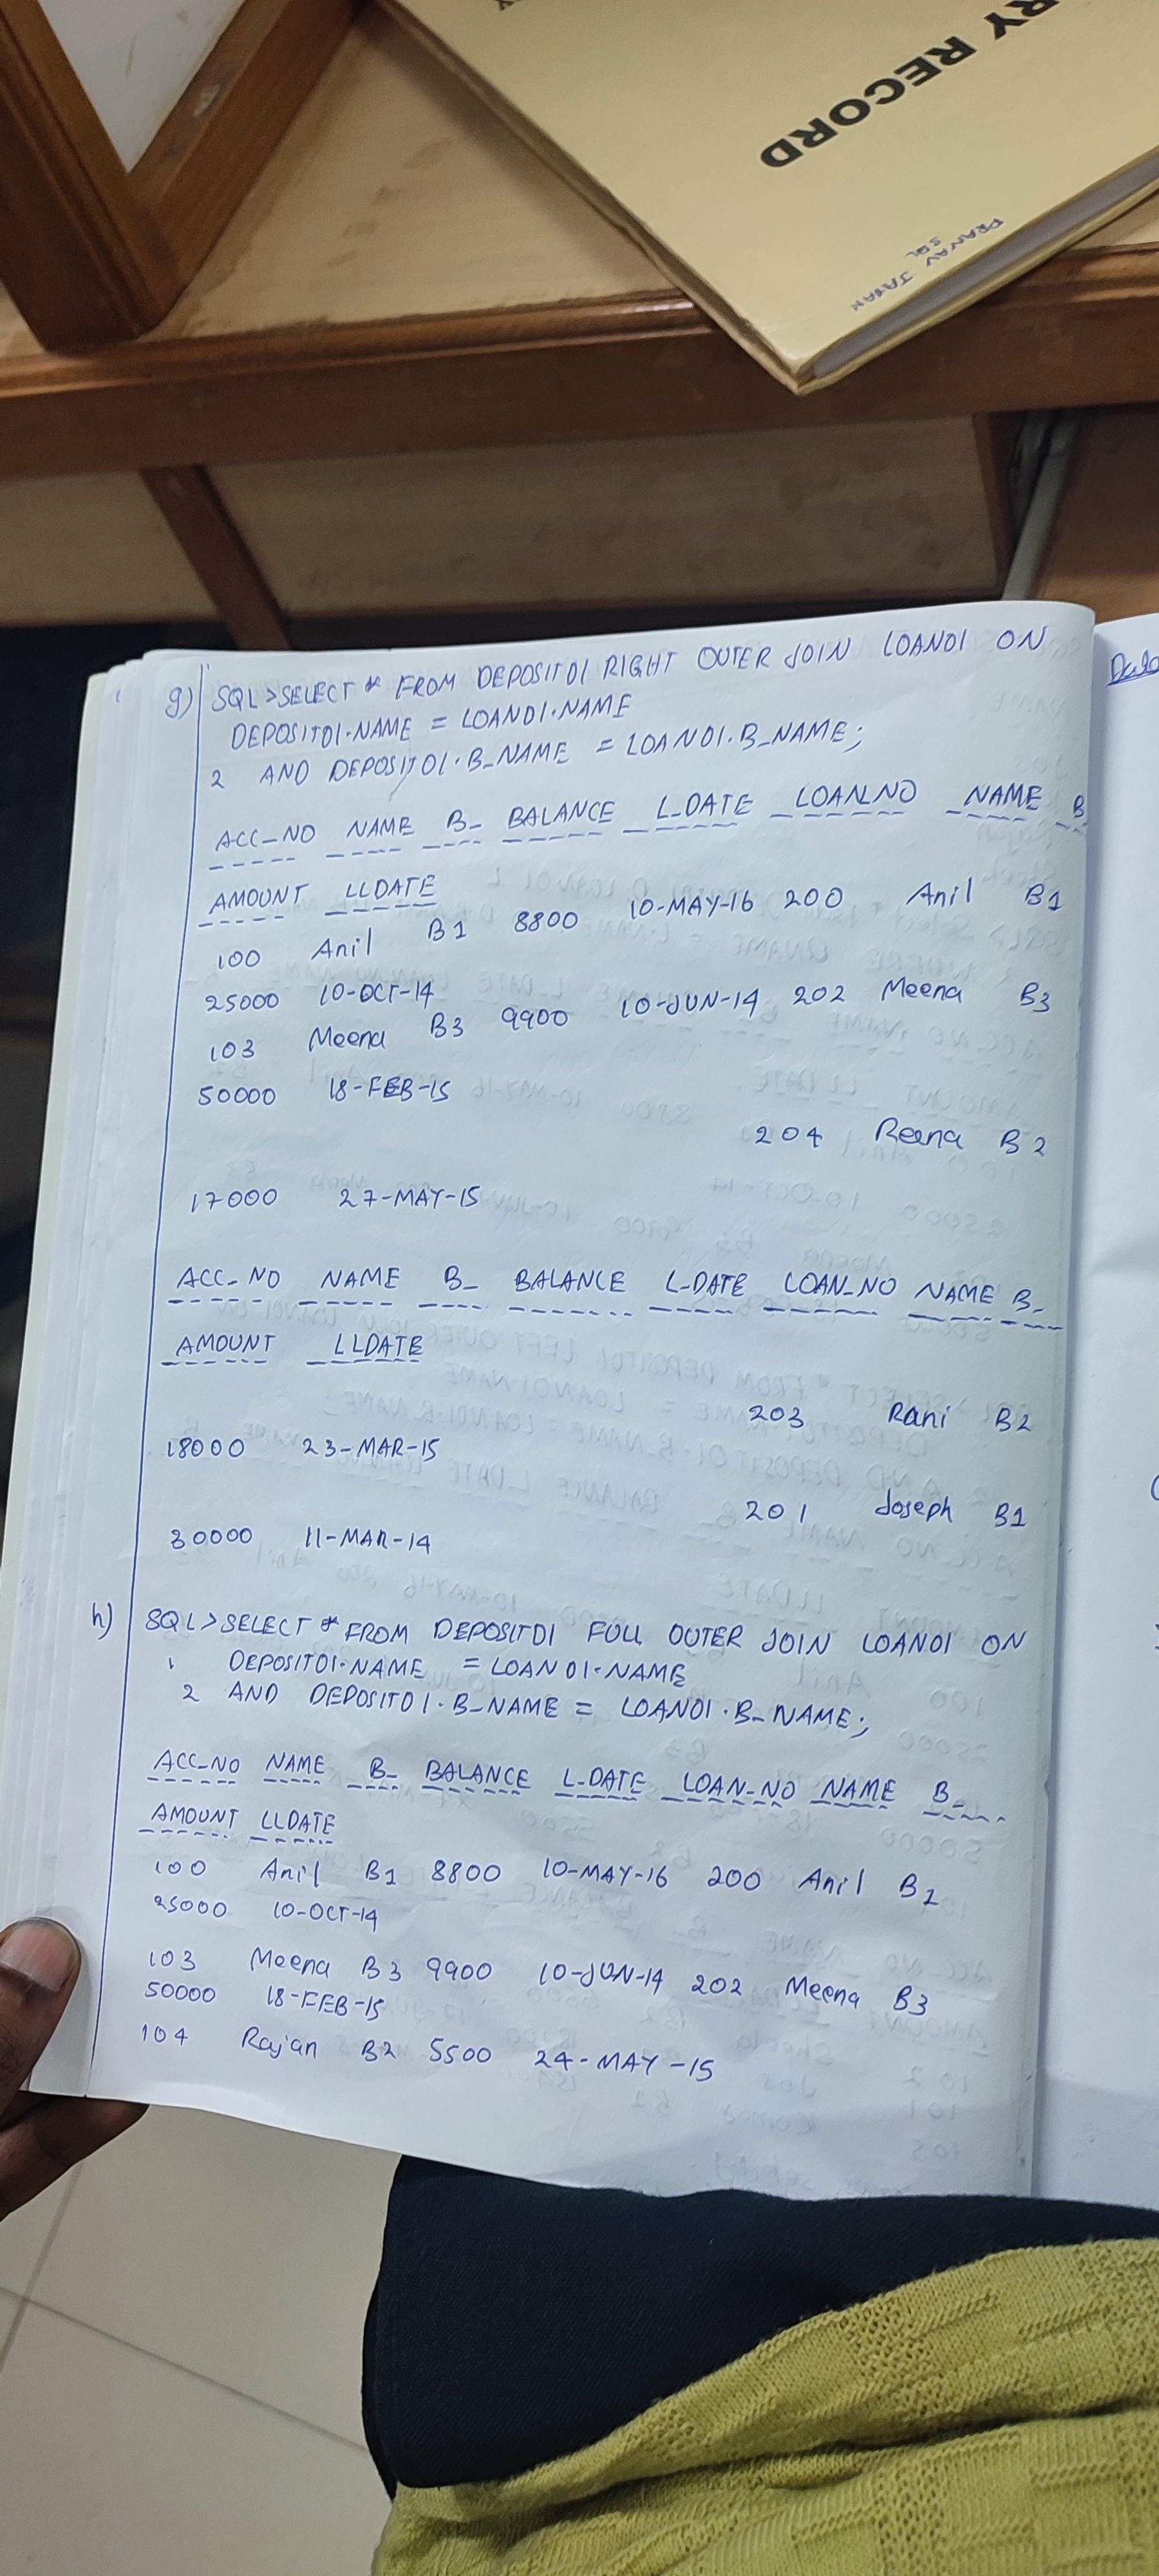 RY RECORD
PRANAV JAYAN
SQL
g) SQL>SELECT * FROM DEPOSIT01 RIGHT OUTER JOIN LOAN01 ON
DEPOSIT01.NAME = LOAN01.NAME
2 AND DEPOSIT01.B_NAME = LOAN01.B_NAME;
ACC_NO NAME B_ BALANCE L_DATE LOAN_NO NAME B
AMOUNT LLDATE
100 Anil B1 8800 10-MAY-16 200 Anil B1
25000 10-OCT-14
103 Meena B3 9900 10-JUN-14 202 Meena B3
50000 18-FEB-15
204 Reena B2
17000 27-MAY-15
ACC_NO NAME B_ BALANCE L_DATE LOAN_NO NAME B_
AMOUNT LLDATE
203 Rani B2
18000 23-MAR-15
201 Joseph B1
30000 11-MAR-14
h) SQL>SELECT * FROM DEPOSIT01 FULL OUTER JOIN LOAN01 ON
1 DEPOSIT01.NAME = LOAN01.NAME
2 AND DEPOSIT01.B_NAME = LOAN01.B_NAME;
ACC_NO NAME B_ BALANCE L_DATE LOAN_NO NAME B_
AMOUNT LLDATE
100 Anil B1 8800 10-MAY-16 200 Anil B1
25000 10-OCT-14
103 Meena B3 9900 10-JUN-14 202 Meena B3
50000 18-FEB-15
104 Rajan B2 5500 24-MAY-15